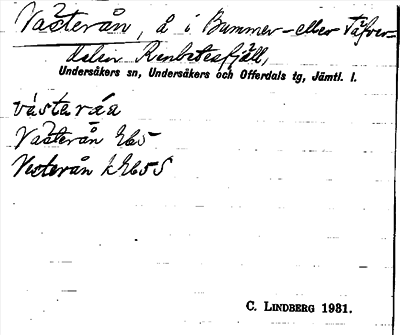 Västerån, å i Bummer- eller Täfver-
dalen Renbetesfjäll,
Undersåkers sn, Undersåkers och Offerdals tg, Jämtl. l.
västeråa
Västerån Eb5
Vesterån k Eb5S
C. LINDBERG 1931.